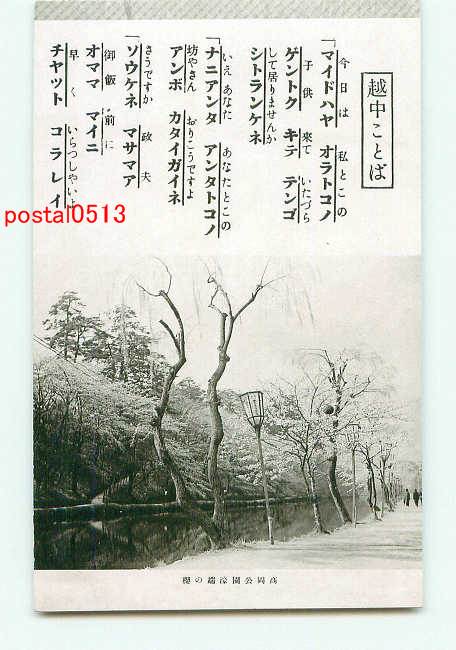 越中ことば
今日は 私とこの
「マイドハヤ オラトコノ
子供 来て いたづら
ゲントク キテ テンゴ
して居りませんか
シトランケネ
いえ あなた あなたとこの
「ナニアンタ アンタトコノ
坊やさん おりこうですよ
アンボ カタイガイネ
さうですか 政夫
「ソウケネ マサマア
御飯 前に
オママ マイニ
早く いらつしやいよ
チヤット コラレイ
postal0513
高岡公園濠端の櫻